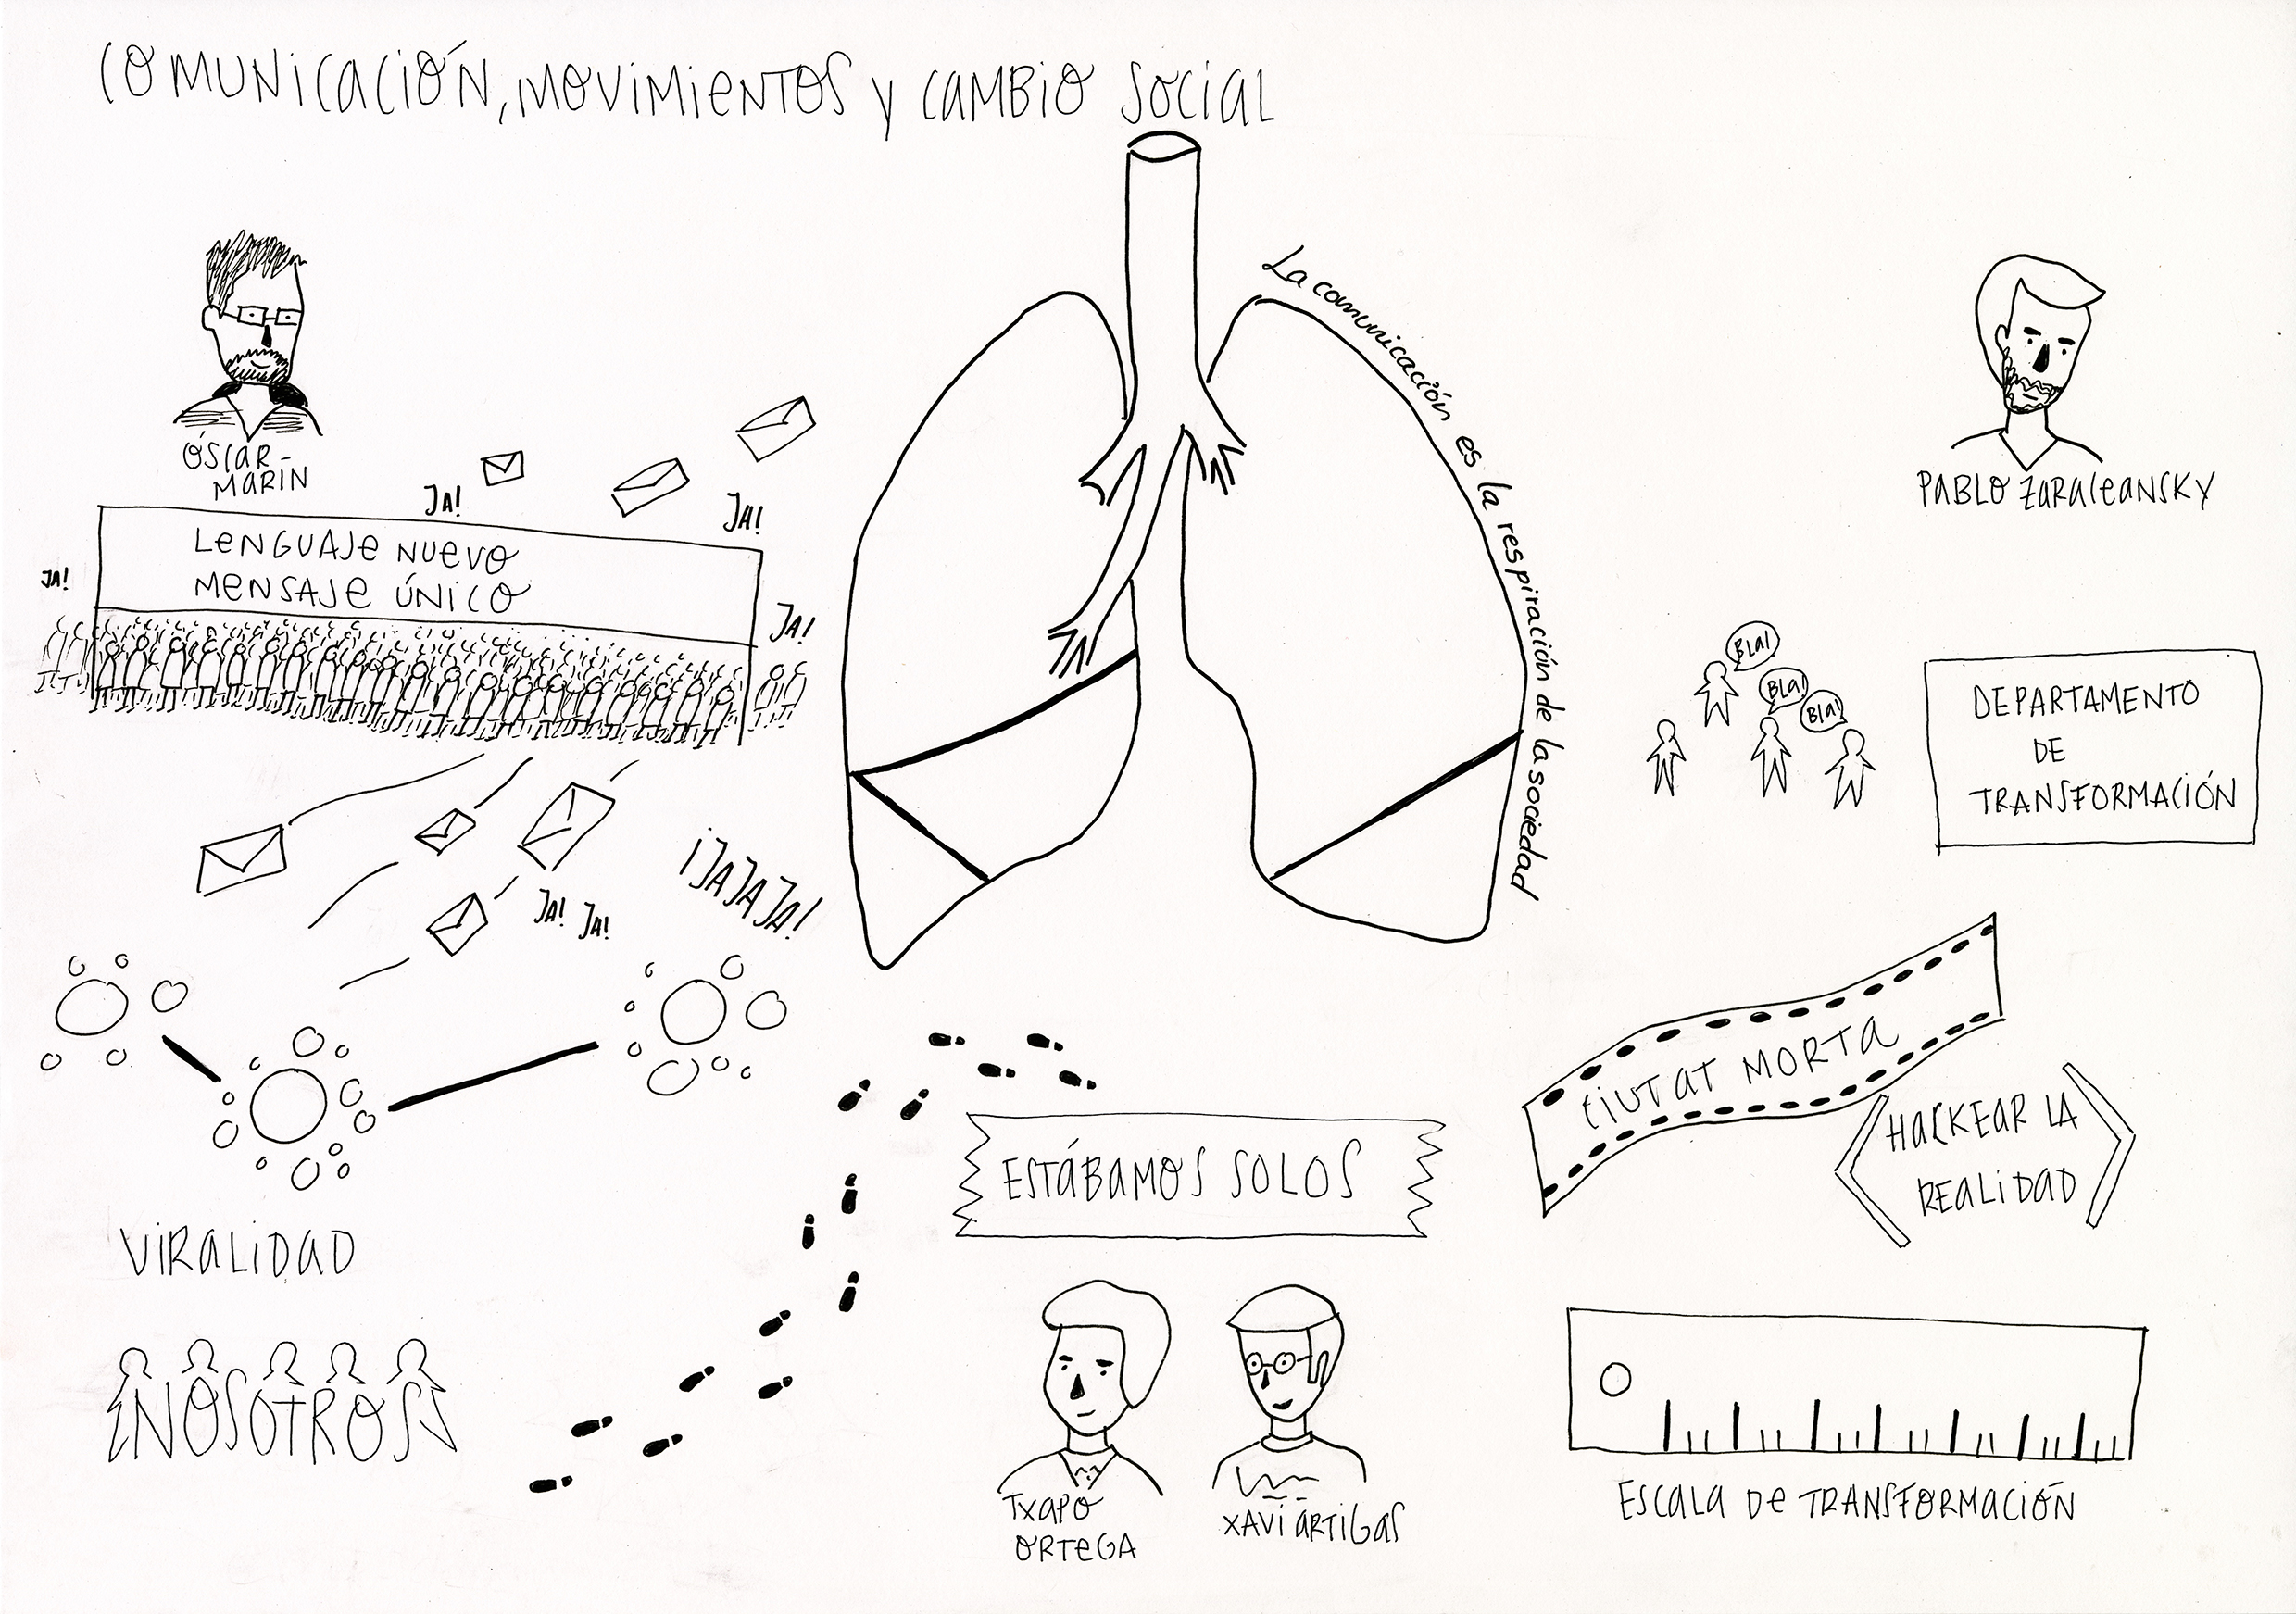 COMUNICACIÓN, MOVIMIENTOS Y CAMBIO SOCIAL
ÓSCAR-
MARIN
JA!
JA!
JA!
LENGUAJE NUEVO
MENSAJE ÚNICO
JA!
¡JAJAJA!
JA! JA!
VIRALIDAD
NOSOTROS
La comunicación es la respiración de la sociedad
ESTÁBAMOS SOLOS
TXAPO
ORTEGA
XAVI ARTIGAS
PABLO ZARACEANSKY
BLA!
BLA!
BLA!
DEPARTAMENTO
DE
TRANSFORMACIÓN
CIUTAT MORTA
HACKEAR LA
REALIDAD
ESCALA DE TRANSFORMACIÓN